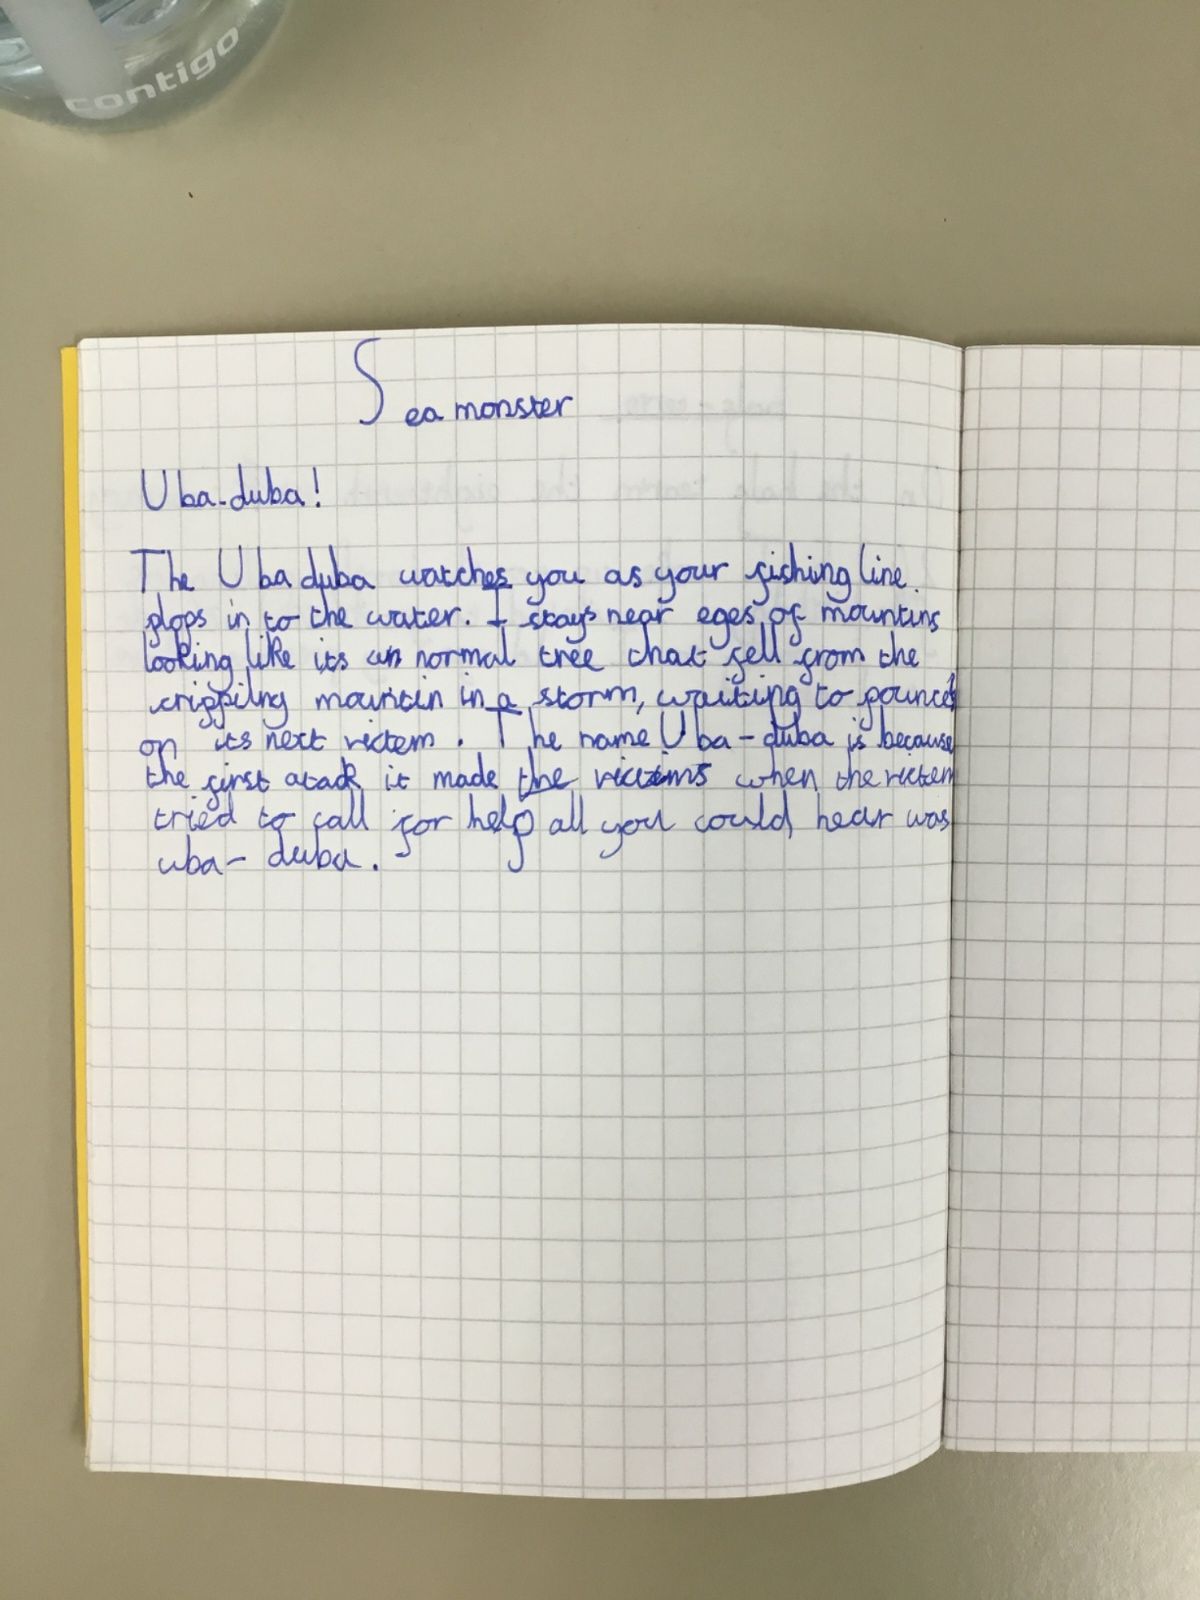 contigo
Sea monster
Uba-duba!
The Uba duba watches you as your fishing line
plops in to the water. I stays near eges of mountins
looking like its an normal tree that fell from the
crippilng mountin in a storm, waiting to pounced
on its next victem. The name Uba-duba is because
the first atack it made the victims when the victem
tried to call for help all you could hear was
uba-duba.